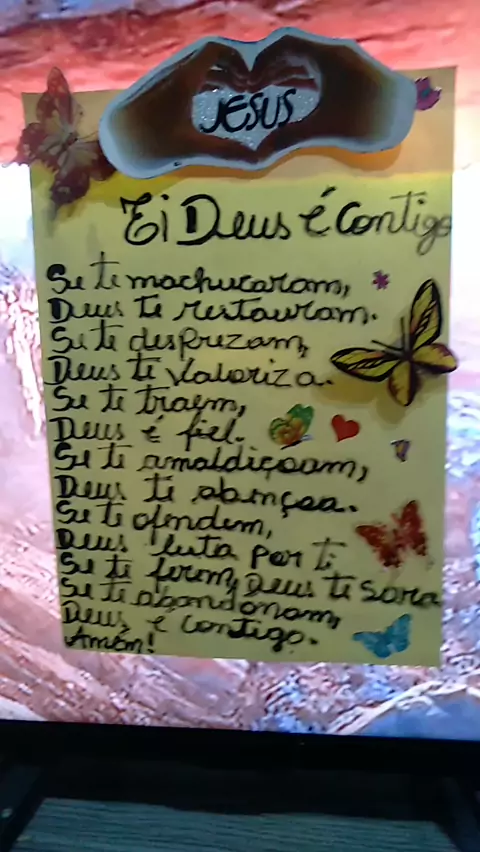 JESUS
Ei Deus é Contigo
Se te machucaram,
Deus te restauram.
Se te desprezam,
Deus te valoriza.
Se te traem,
Deus é fiel.
Se te amaldiçoam,
Deus te abençoa.
Se te ofendem,
Deus luta por ti
Se te ferem, Deus te Sara
Se te abandonam,
Deus é contigo.
Amém!